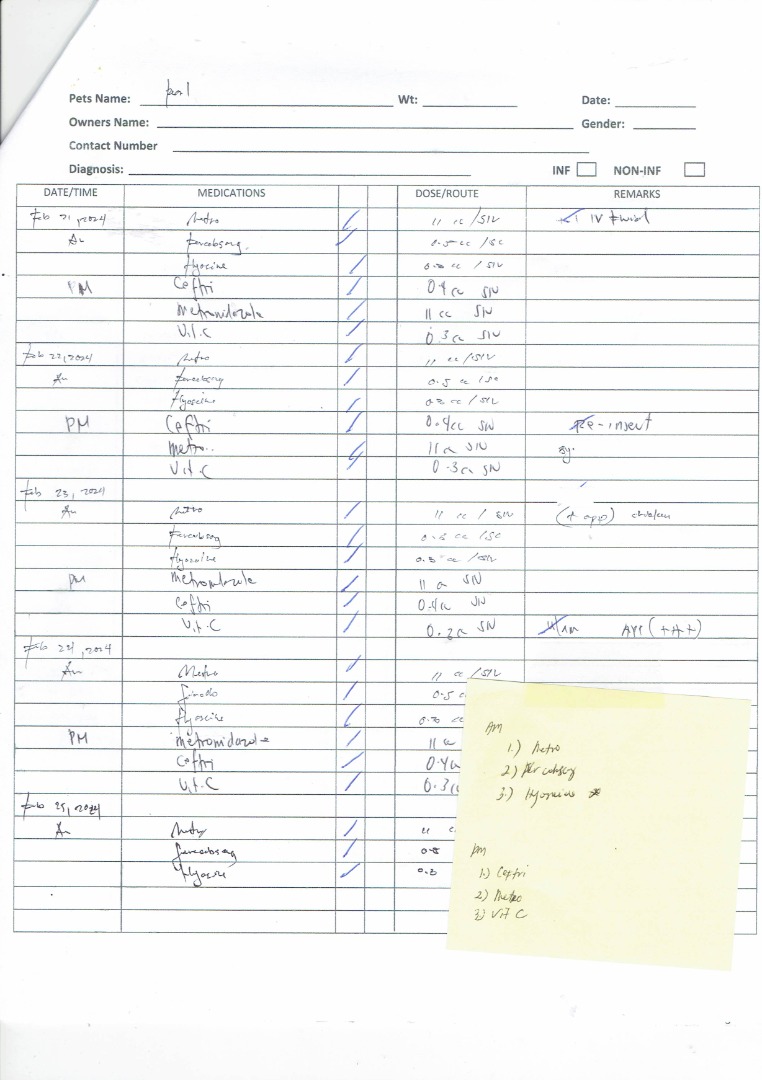 Pets Name: Wt: Date:
Owners Name: Gender:
Contact Number
Diagnosis: INF NON-INF
DATE/TIME MEDICATIONS DOSE/ROUTE REMARKS
Feb 21, 2024 Metro 11 cc /SIV IV Fluid
AM 0.5 cc /SC
Hyoscine cc / SIV
PM Ceftri 0.4 cc SIV
Metronidazole 11 cc SIV
Vit. C 0.3 cc SIV
Feb 22, 2024 Metro 11 cc /SIV
AM 0.5 cc /SC
Hyoscine cc / SIV
PM Ceftri 0.4 cc SIV Re-insert
Metro.. 11 cc SIV
Vit. C 0.3 cc SIV
Feb 23, 2024
AM Metro 11 cc / SIV chicken
cc /SC
Hyoscine 0.3 cc /SIV
PM Metronidazole 11 cc SIV
Ceftri 0.4 cc SIV
Vit. C 0.3 cc SIV
Feb 24, 2024
AM Metro 11 cc /SIV
0.5 c
Hyoscine
PM Metronidazole 11 cc
Ceftri 0.4 cc
Vit. C 0.3
Feb 25, 2024
AM Metro 11 c
Hyoscine 0.3
AM
1.) Metro
2)
3.) Hyoscine *
PM
1.) Ceftri
2) Metro
3) Vit C